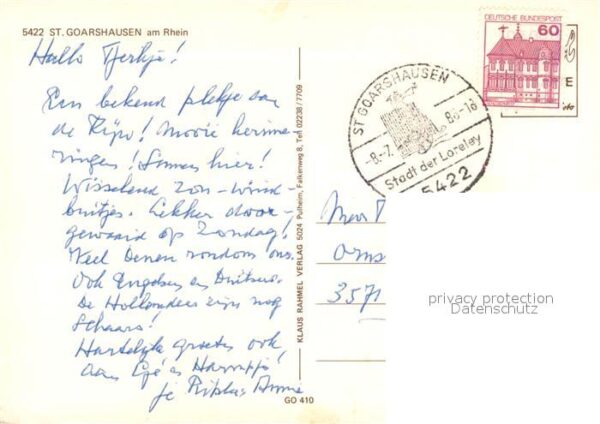 5422 ST. GOARSHAUSEN am Rhein
Hallo Tjerkje!
Een bekend plekje aan
de Rijn! Mooie herinne-
ringen! Samen hier!
Wisselend zon-wind-
buitjes. Lekker door-
gewaaid op Zondag!
Veel Denen rondom ons.
Ook Engelsen en Duitsers.
De Hollanders zijn nog
Schaars!
Hartelijk groetes ook
aan en
je Anne
KLAUS RAHMEL VERLAG 5024 Pulheim, Falkenweg 8, Tel. 02238/7709
GO 410
DEUTSCHE BUNDESPOST
60
ST GOARSHAUSEN
-8.-7. 86-18
Stadt der Loreley
5422
E
3571
privacy protection
Datenschutz